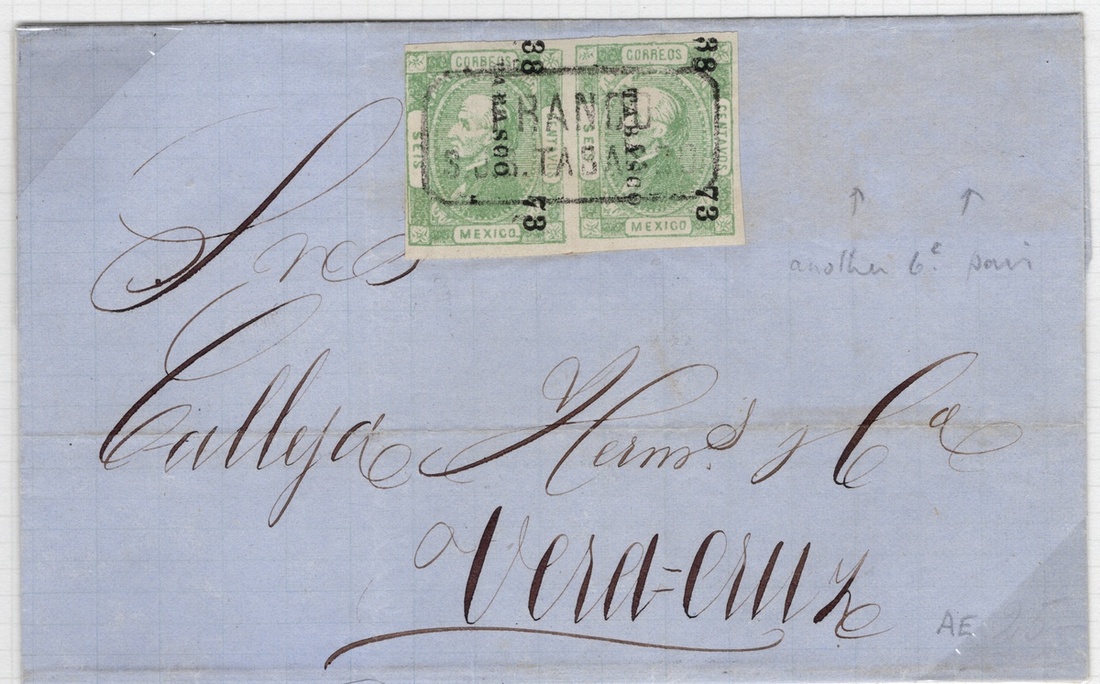 38 38
CORREOS CORREOS
SEIS CENTAVOS SEIS CENTAVOS
TABASCO TABASCO
FRANCO
S.J.B. TABASCO
MEXICO MEXICO
73 73
Sres
another 6c pair
Calleja Herms. y Ca
Vera=cruz
AE